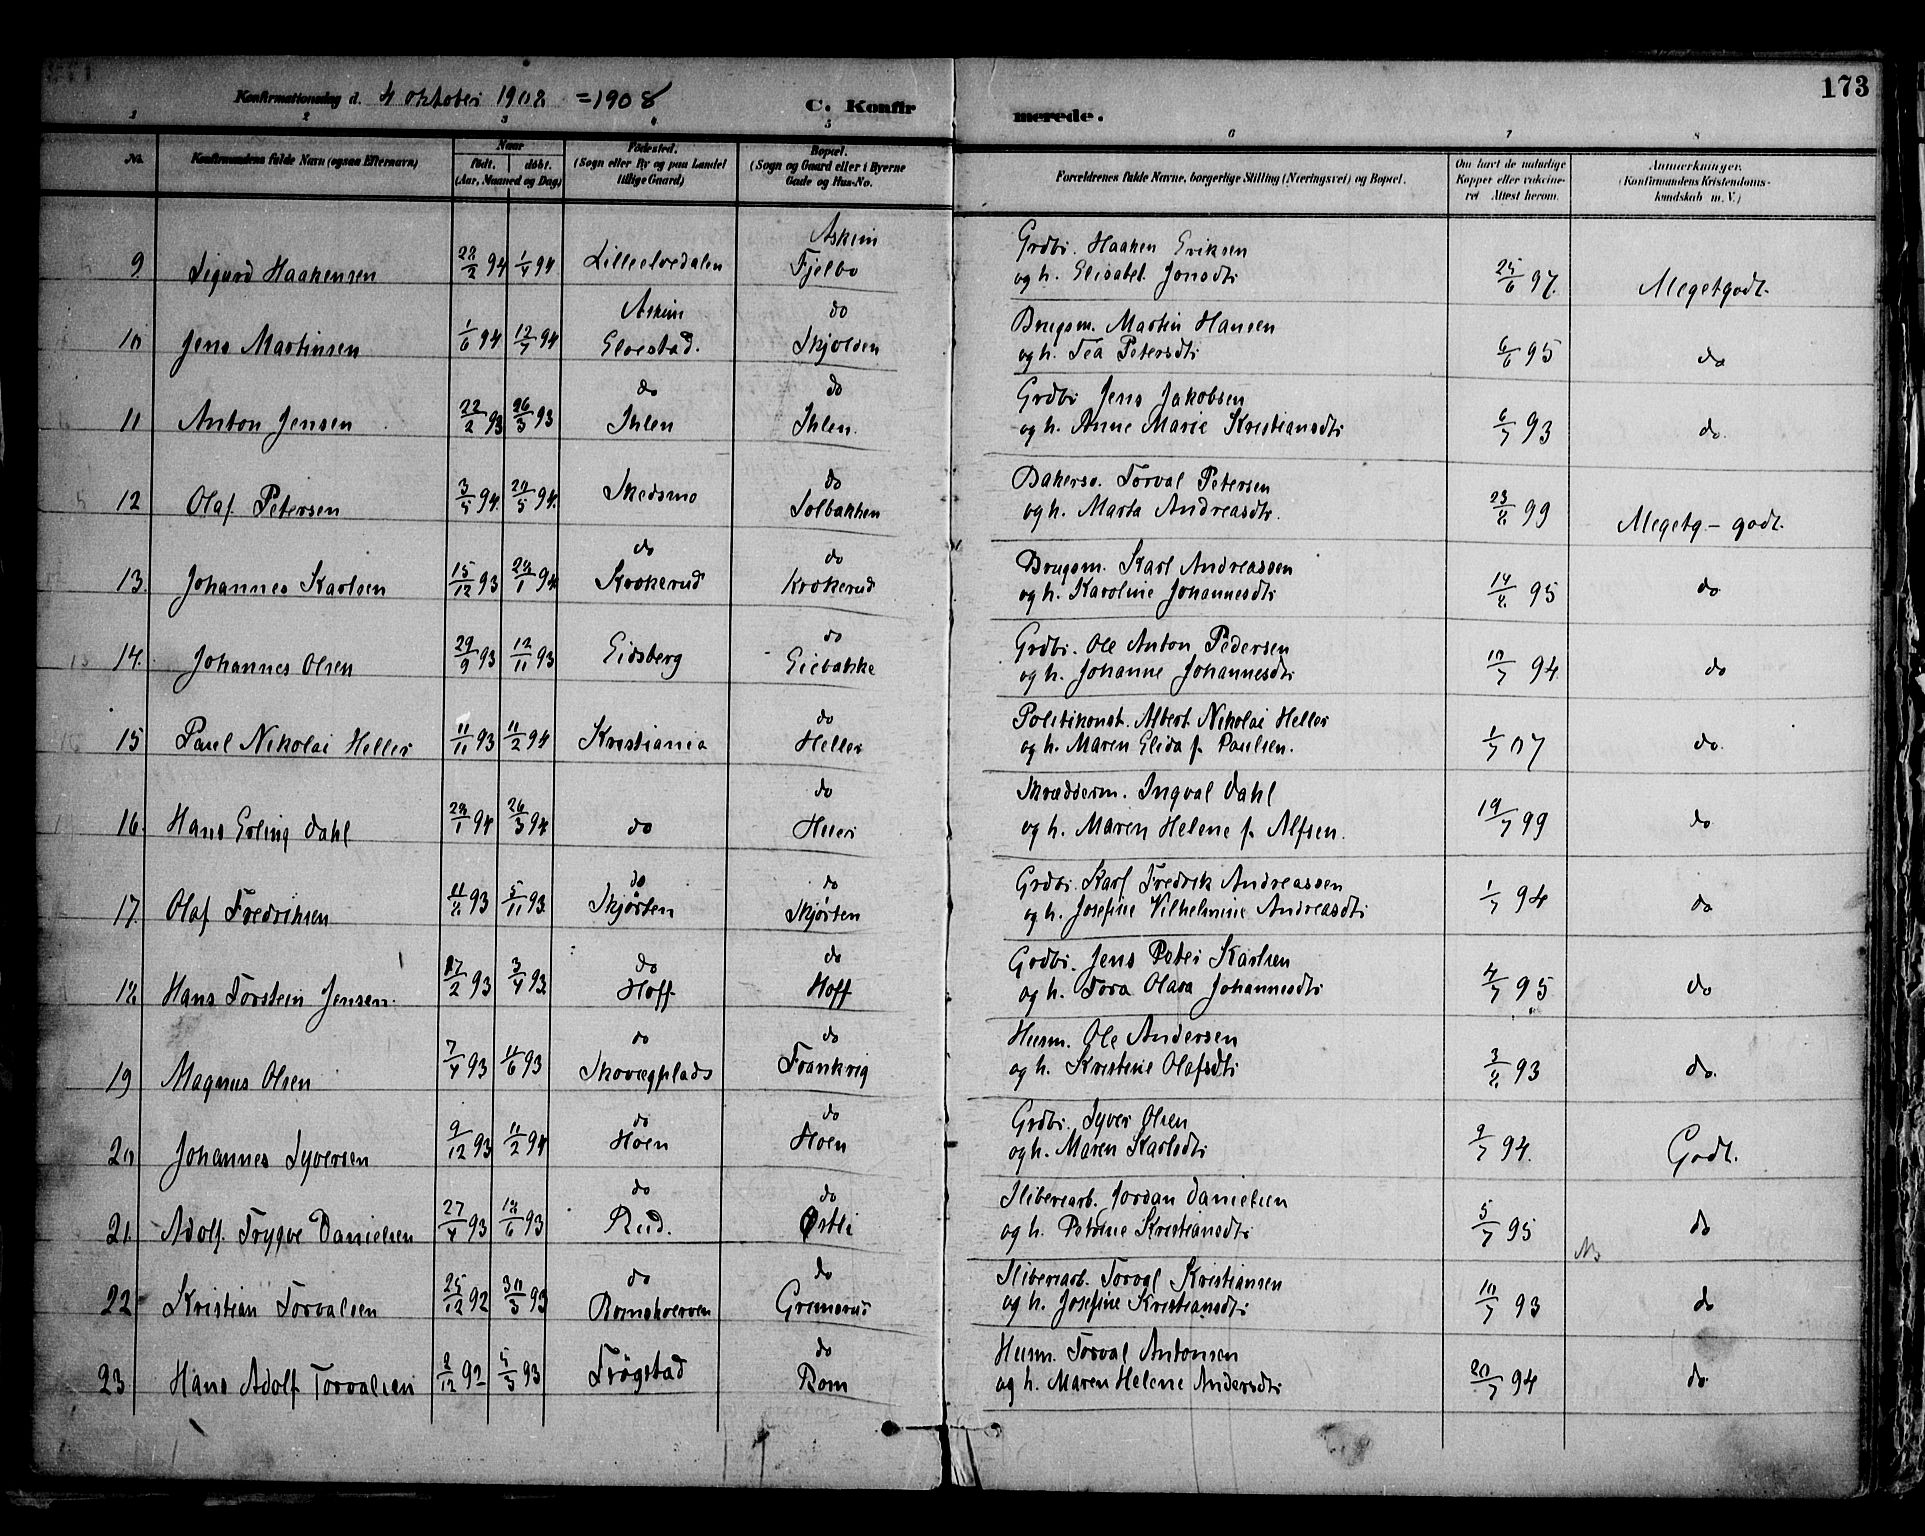 173
Konfirmationsdag d. 4 oktober 1908 = 1908 C. Konfirmerede.
1 2 3 4 5 6 7 8
No. Konfirmandens fulde Navn (ogsaa Efternavn) Naar født. døbt. (Aar, Maaned og Dag) Fødested. (Sogn eller By og paa Landet tillige Gaard) Bopæl. (Sogn og Gaard eller i Byerne Gade og Hus-No. Forældrenes fulde Navne, borgerlige Stilling (Næringsvei) og Bopæl. Om havt de naturlige Kopper eller vaccineret Attest herom. Anmærkninger. (Konfirmandens Kristendomskundskab m. V.)
Askim Grdbr. Haaken Eriksen
9 Sigurd Haakensen 28/2 94 1/4 94 Lilleelvedalen Fjelbo og h. Elisabet Jonsdtr 25/6 97. Megetgodt.
Askim do Brugsm. Martin Hansen
10 Jens Martinsen 1/6 94 12/7 94 Elvestad. Skjolden og h. Tea Petersdtr 6/6 95 do
do do Grdbr Jens Jakobsen
11 Anton Jensen 22/2 93 26/3 93 Ihlen Ihlen. og h. Anne Marie Kristiansdtr 6/7 93 do.
do Bakersv. Torval Petersen
12 Olaf Petersen 3/5 94. 20/5 94. Skedsmo Solbakken og h. Marta Andreasdtr. 23/8 99 Megetg- godt.
do do Brugsm. Karl Andreassen
13. Johannes Karlsen 15/12 93 28/1 94 Krokerud Krokerud og h. Karoline Johannesdtr 14/8 95 do
do Grdbr. Ole Anton Pedersen
14. Johannes Olsen 29/9 93 12/11 93 Eidsberg Giebakke og h. Johanne Johannesdtr 10/7 94 do
do Politikonst. Albert Nikolai Heller
15 Paul Nikolai Heller 11/11 93 11/2 94 Kristiania Heller og h. Maren Elida f. Paulsen. 1/7 07 do.
do Skrædderm. Ingval Dahl
16. Hans Erling Dahl 28/1 94 26/3 94 do Huer og h. Maren Helene f. Alfsen. 19/7 99 do
do do Grdbr. Karl Fredrik Andreassen
17. Olaf Fredriksen 11/8 93 5/11 93 Skjørten Skjørten og h. Josefine Vilhelmine Andreasdtr 1/7 94 do
do do Grdbr. Jens Peter Karlsen
18. Hans Torstein Jensen. 17/2 93 3/4 93 Hoff Hoff og h. Tora Olava Johannesdtr 4/7 95 do
do do Husm. Ole Andersen
19 Magnus Olsen 7/4 93 11/6 93 Skovægplads Frankrig og h. Kristine Olafsdtr 3/8 93 do.
do do Grdbr. Syver Olsen
20 Johannes Syversen 9/12 93 11/2 94 Hoen Hoen og h. Maren Karlsdtr 9/7 94. Godt.
do do Sliberiarb. Jordan Danielsen
21. Adolf Trygve Danielsen 27/4 93 18/6 93 Rud. Østli og h. Petrine Kristiansdtr 5/7 95 do
do do Sliberiarb. Torval Kristiansen
22 Kristian Torvalsen 25/12 92 30/3 93 Romskverven Grimsrud og h. Josefine Kristiansdtr 10/7 93 do
do Husm. Torval Antonsen
23 Hans Adolf Torvalsen 8/12 92 5/3 93 Trøgstad Rom og h. Maren Helene Andersdtr 20/7 94 do